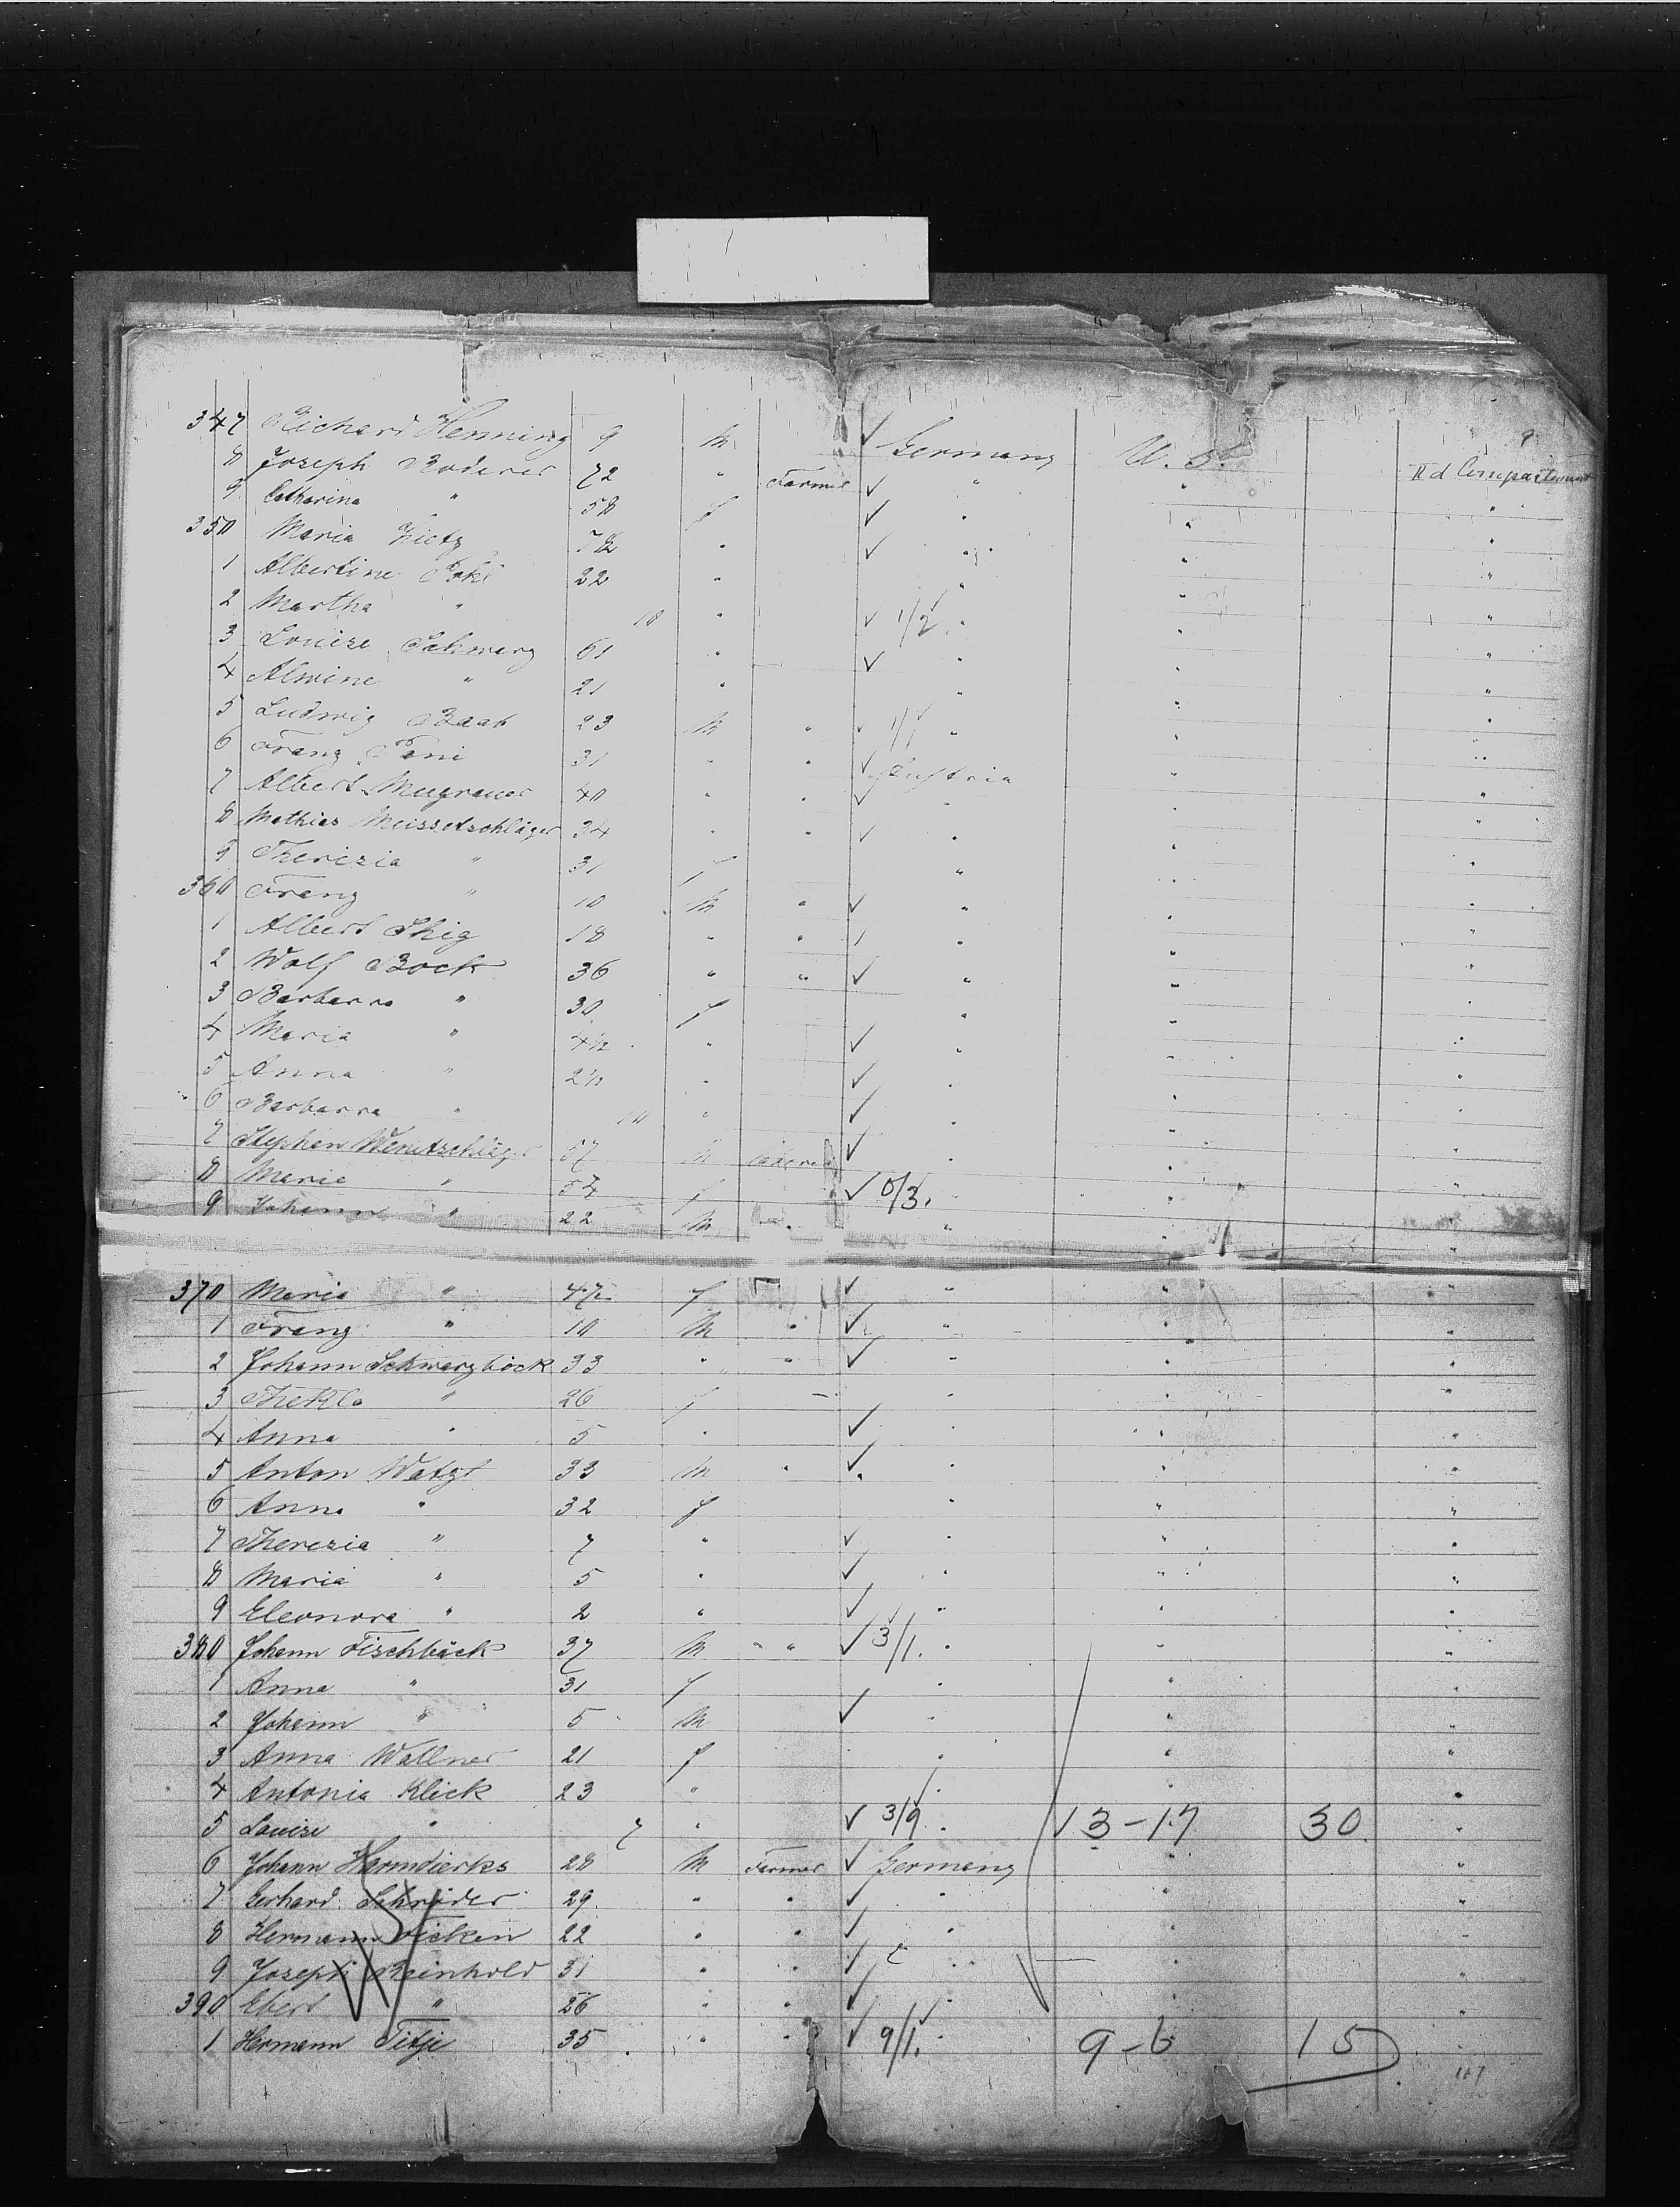 9
347 Richard Henning 9 m Germany U. S.
8 Joseph Boderer 72 " Farmer " " IId Compartment
9 Catharina " 58 f " " "
350 Maria Zietz 7 1/2 " " " "
1 Albertine Pohl 22 " " " "
2 Martha " 10 " 1/2. " " "
3 Louise Schwarz 61 " " " "
4 Alwine " 21 " " " "
5 Ludwig Raab 23 m " 1/1 " " "
6 Franz Pani 31 " " Austria " "
7 Albert Mugrauer 40 " " " " "
8 Mathias 34 " " " " "
9 Theresia " 31 f " " "
360 Franz " 10 m " " " "
1 Albert 18 " " " " "
2 Wolf Bock 36 " " " " "
3 Barbarra " 30 f " " "
4 Maria " 4 1/2 " " " "
5 Anna " 2 1/2 " " " "
6 Barbarra " 10 " " " "
7 Stephan 57 m " " "
8 Maria " 54 f 0/3. " " "
9 Johann " 22 m " " " "
370 Maria " f " " "
1 Franz " 10 m " " " "
2 Johann Schwarzböck 33 " " " " "
3 Thekla " 26 f " " "
4 Anna " 5 " " " "
5 Anton Watzl 33 m " " " "
6 Anna " 32 f " " "
7 Theresia " 7 " " " "
8 Maria " 5 " " " "
9 Eleonora " 2 " " " "
380 Johann Fischbäck 37 m " 3/1. " " "
1 Anna " 31 f " " "
2 Johann " 5 m " " "
3 Anna Wallner 21 f " " "
4 Antonia Klick 23 " " " "
5 Louise " 7 " 3/9. " 13-17 30 "
6 Johann Harmdierks 28 m Farmer Germany " "
7 Gerhard Schröder 29 " " " " "
8 Hermann Ficken 22 " " " " "
9 Joseph Reinhold 31 " " " " "
390 Ebert " 26 " " " " "
1 Hermann Titje 35 " " 9/1. " 9-6 15 "
167